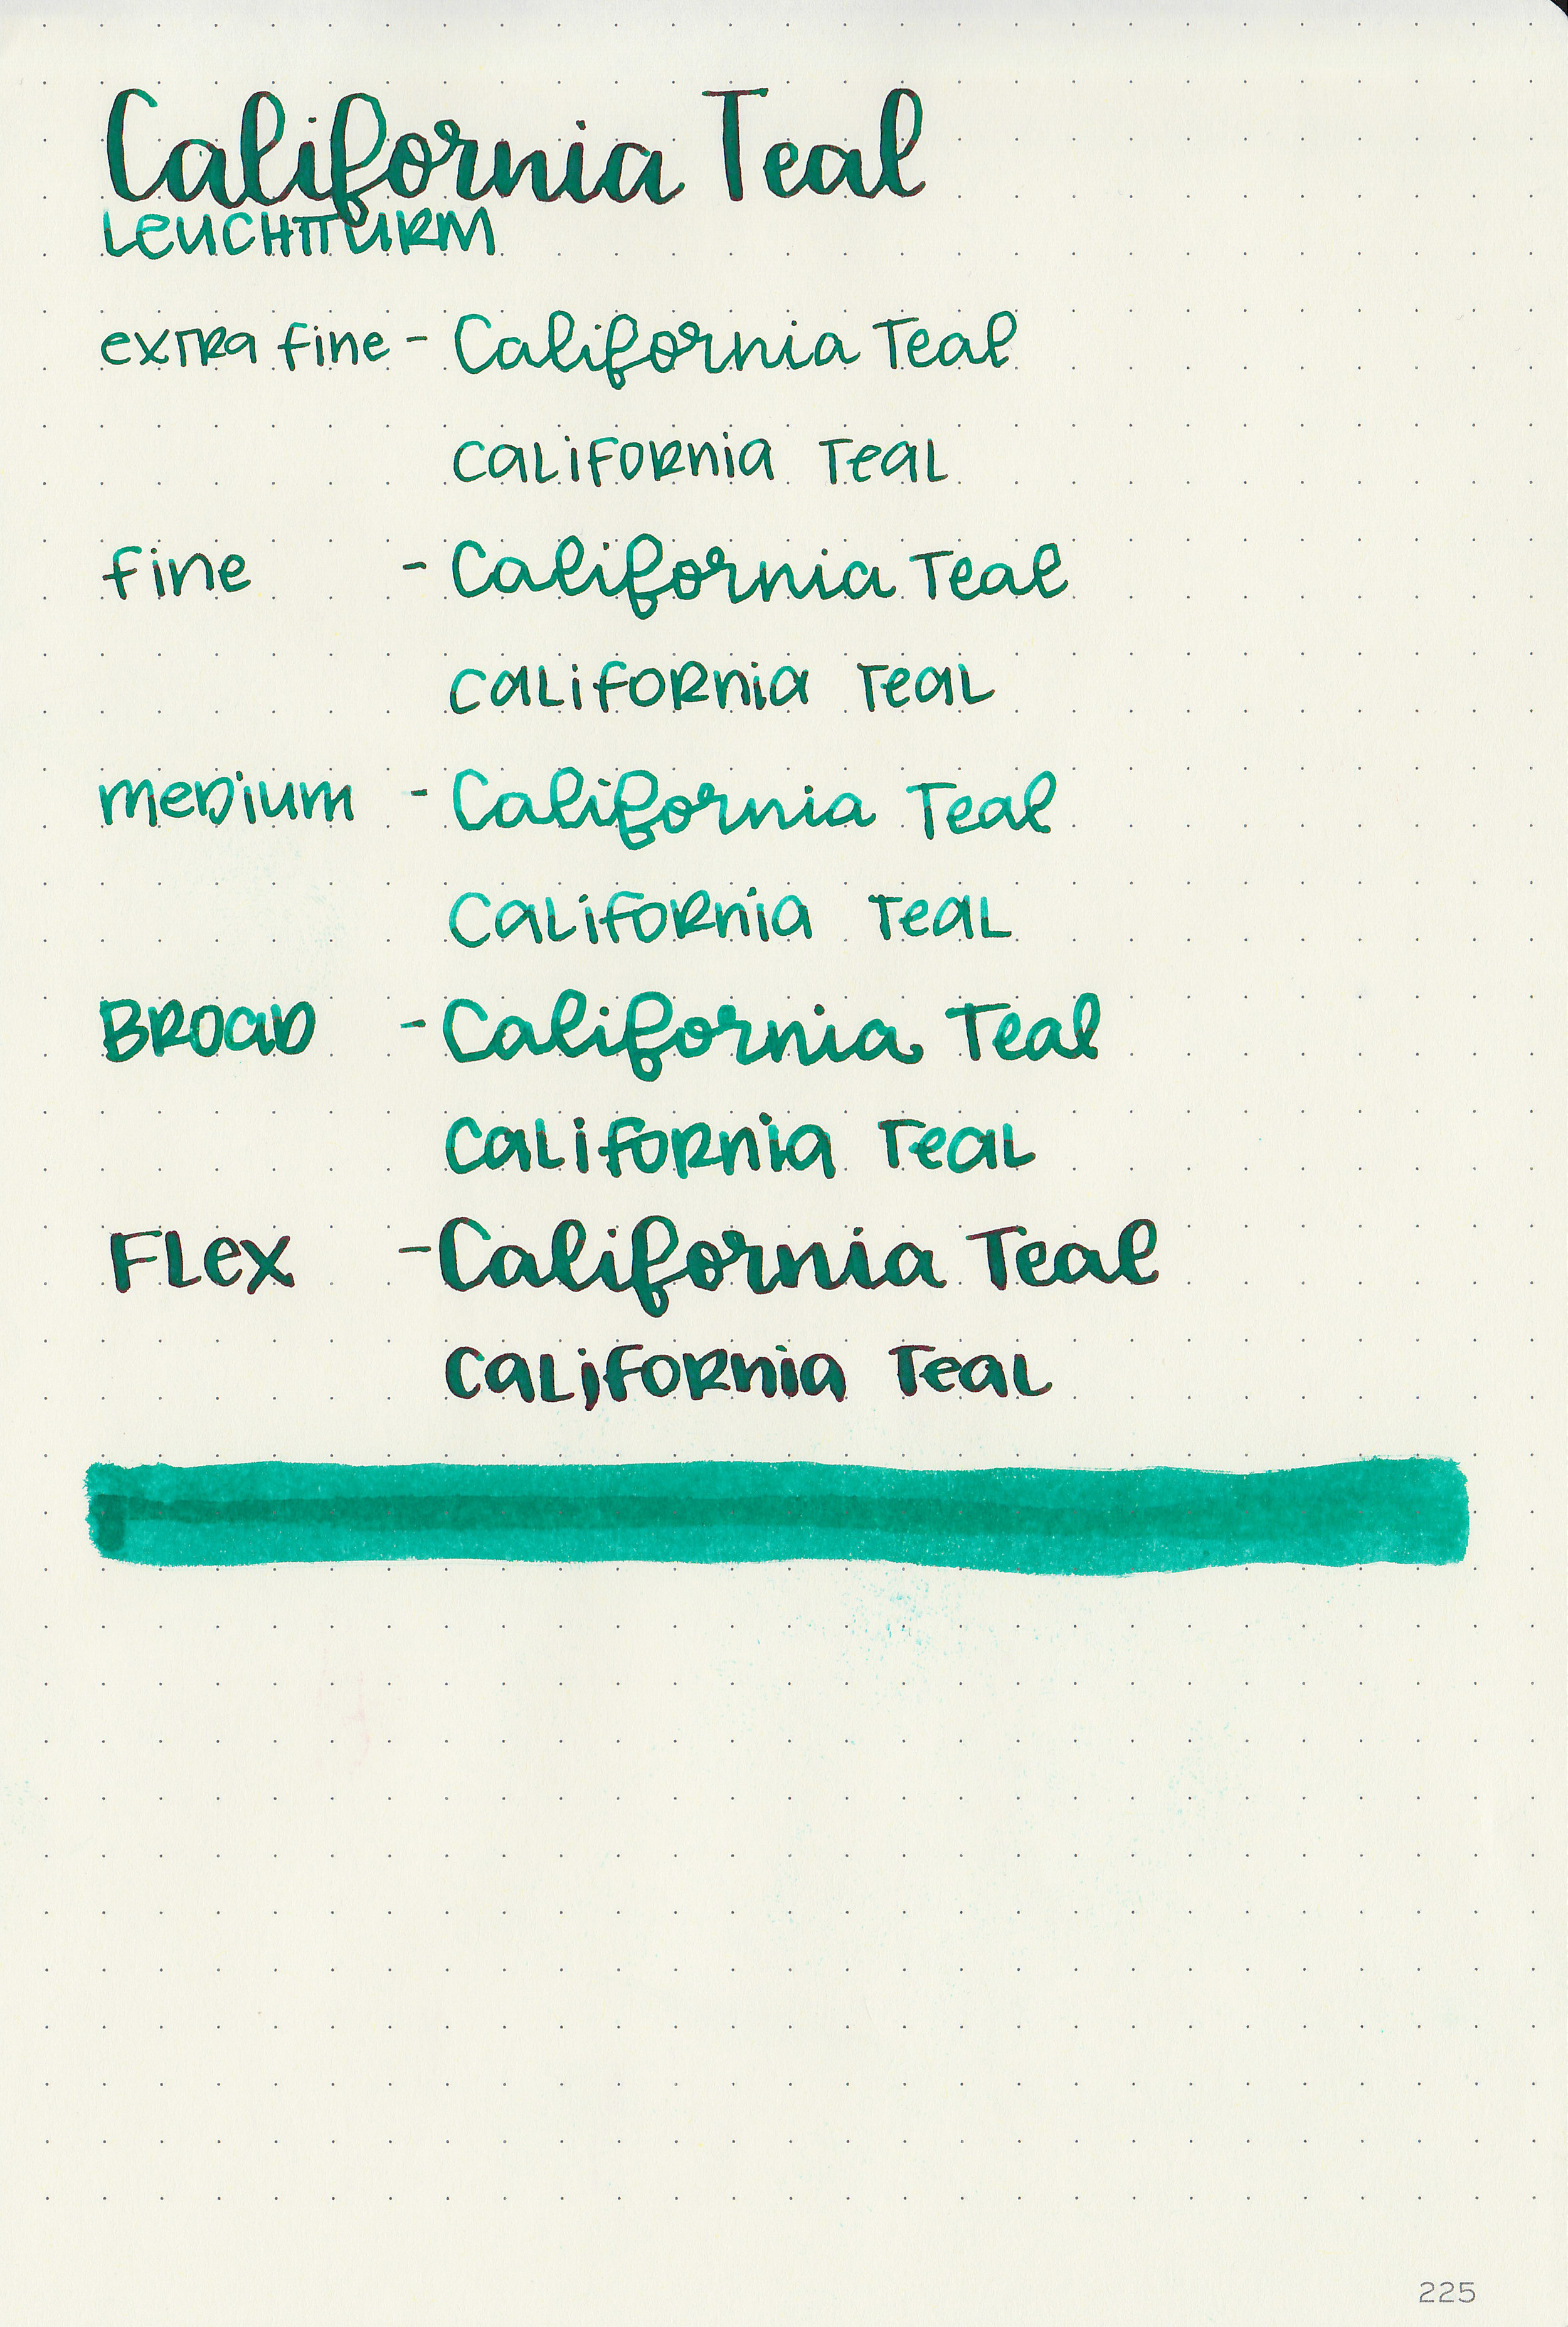 California Teal
LEUCHTTURM
extra fine - California Teal
CALIFORNIA TEAL
fine - California Teal
CALIFORNIA TEAL
medium - California Teal
CALIFORNIA TEAL
BROAD - California Teal
CALIFORNIA TEAL
FLEX - California Teal
CALIFORNIA TEAL
225